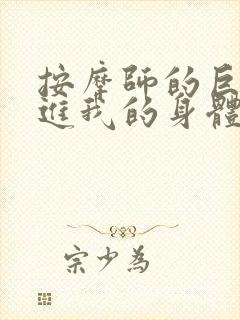 按摩師的巨
進我的身體
宗少為